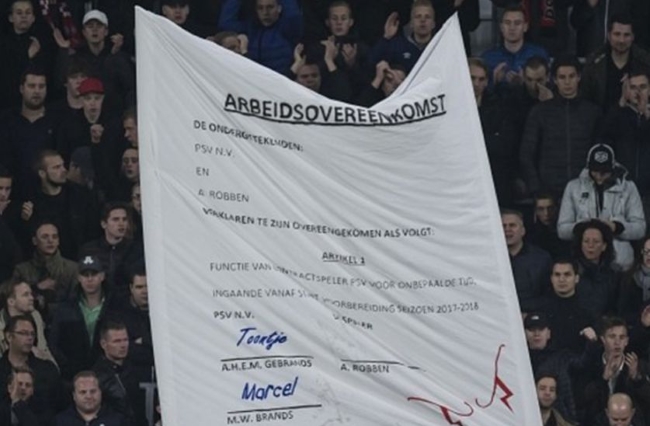 ARBEIDSOVEREENKOMST
DE ONDERGETEKENDEN:
PSV N.V.
EN
A. ROBBEN
VERKLAREN TE ZIJN OVEREENGEKOMEN ALS VOLGT:
ARTIKEL 1
FUNCTIE VAN CONTRACTSPELER PSV VOOR ONBEPAALDE TIJD,
INGAANDE VANAF START VOORBEREIDING SEIZOEN 2017-2018
PSV N.V. SPELER
Toontje
A.H.E.M. GEBRANDS A. ROBBEN
Marcel
M.W. BRANDS